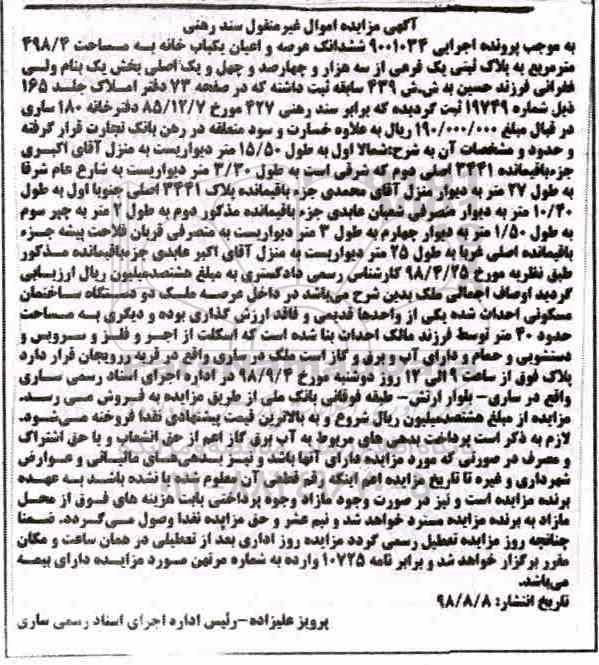 آگهی مزایده اموال غیرمنقول سند رهنی
به موجب پرونده اجرایی ۹۰۰۱۰۳۴ ششدانگ عرصه و اعیان یکباب خانه به مساحت ۴۹۸/۴
مترمربع به پلاک ثبتی یک فرعی از سه هزار و چهارصد و چهل و یک اصلی بخش یک بنام ولی
غفرانی فرزند حسین به ش.ش ۴۳۹ سابقه ثبت داشته که در صفحه ۷۳ دفتر املاک جلد ۱۶۵
ذیل شماره ۱۹۷۴۹ ثبت گردیده که برابر سند رهنی ۴۲۷ مورخ ۸۵/۱۲/۷ دفترخانه ۱۸۰ ساری
در قبال مبلغ ۱۹۰/۰۰۰/۰۰۰ ریال به علاوه خسارت و سود متعلقه در رهن بانک تجارت قرار گرفته
و حدود و مشخصات آن به شرح:شمالا اول به طول ۱۵/۵۰ متر دیواریست به منزل آقای اکبری
جزءباقیمانده ۳۴۴۱ اصلی دوم که شرقی است به طول ۳/۳۰ متر دیواریست به شارع عام شرقا
به طول ۲۷ متر به دیوار منزل آقای محمدی جزء باقیمانده پلاک ۳۴۴۱ اصلی جنوبا اول به طول
۱۰/۴۰ متر به دیوار متصرفی شعبان عابدی جزء باقیمانده مذکور دوم به طول ۲ متر به چپر سوم
به طول ۱/۵۰ متر به دیوار چهارم به طول ۳ متر دیواریست به متصرفی قربان فلاحت پیشه جزء
باقیمانده اصلی غربا به طول ۲۵ متر دیواریست به منزل آقای اکبر عابدی جزءباقیمانده مذکور
طبق نظریه مورخ ۹۸/۴/۲۵ کارشناس رسمی دادگستری به مبلغ هشتصدمیلیون ریال ارزیابی
گردید اوصاف اجمالی ملک بدین شرح می‌باشد در داخل عرصه ملک دو دستگاه ساختمان
مسکونی احداث شده یکی از واحدها قدیمی و فاقد ارزش گذاری بوده و دیگری به مساحت
حدود ۴۰ متر توسط فرزند مالک احداث بنا شده است که اسکلت از اجر و فلز و سرویس و
دستشویی و حمام و دارای آب و برق و گاز است ملک در ساری واقع در قریه رروبجان قرار دارد
پلاک فوق از ساعت ۹ الی ۱۲ روز دوشنبه مورخ ۹۸/۹/۴ در اداره اجرای اسناد رسمی ساری
واقع در ساری- بلوار ارتش- طبقه فوقانی بانک ملی از طریق مزایده به فروش می رسد.
مزایده از مبلغ هشتصدمیلیون ریال شروع و به بالاترین قیمت پیشنهادی نقدا فروخته می‌شود.
لازم به ذکر است پرداخت بدهی های مربوط به آب برق گاز اعم از حق انشعاب و یا حق اشتراک
و مصرف در صورتی که مورد مزایده دارای آنها باشد و نیز بدهی های مالیاتی و عوارض
شهرداری و غیره تا تاریخ مزایده اعم اینکه رقم قطعی آن معلوم شده یا نشده باشد به عهده
برنده مزایده است و نیز در صورت وجود مازاد وجوه پرداختی بابت هزینه های فوق از محل
مازاد به برنده مزایده مسترد خواهد شد و نیم عشر و حق مزایده نقدا وصول می‌گردد. ضمنا
چنانچه روز مزایده تعطیل رسمی گردد مزایده روز اداری بعد از تعطیلی در همان ساعت و مکان
مقرر برگزار خواهد شد و برابر نامه ۱۰۷۲۵ وارده به شماره مرتهن مورد مزایده دارای بیمه
می‌باشد.
تاریخ انتشار: ۹۸/۸/۸
پرویز علیزاده -رئیس اداره اجرای اسناد رسمی ساری